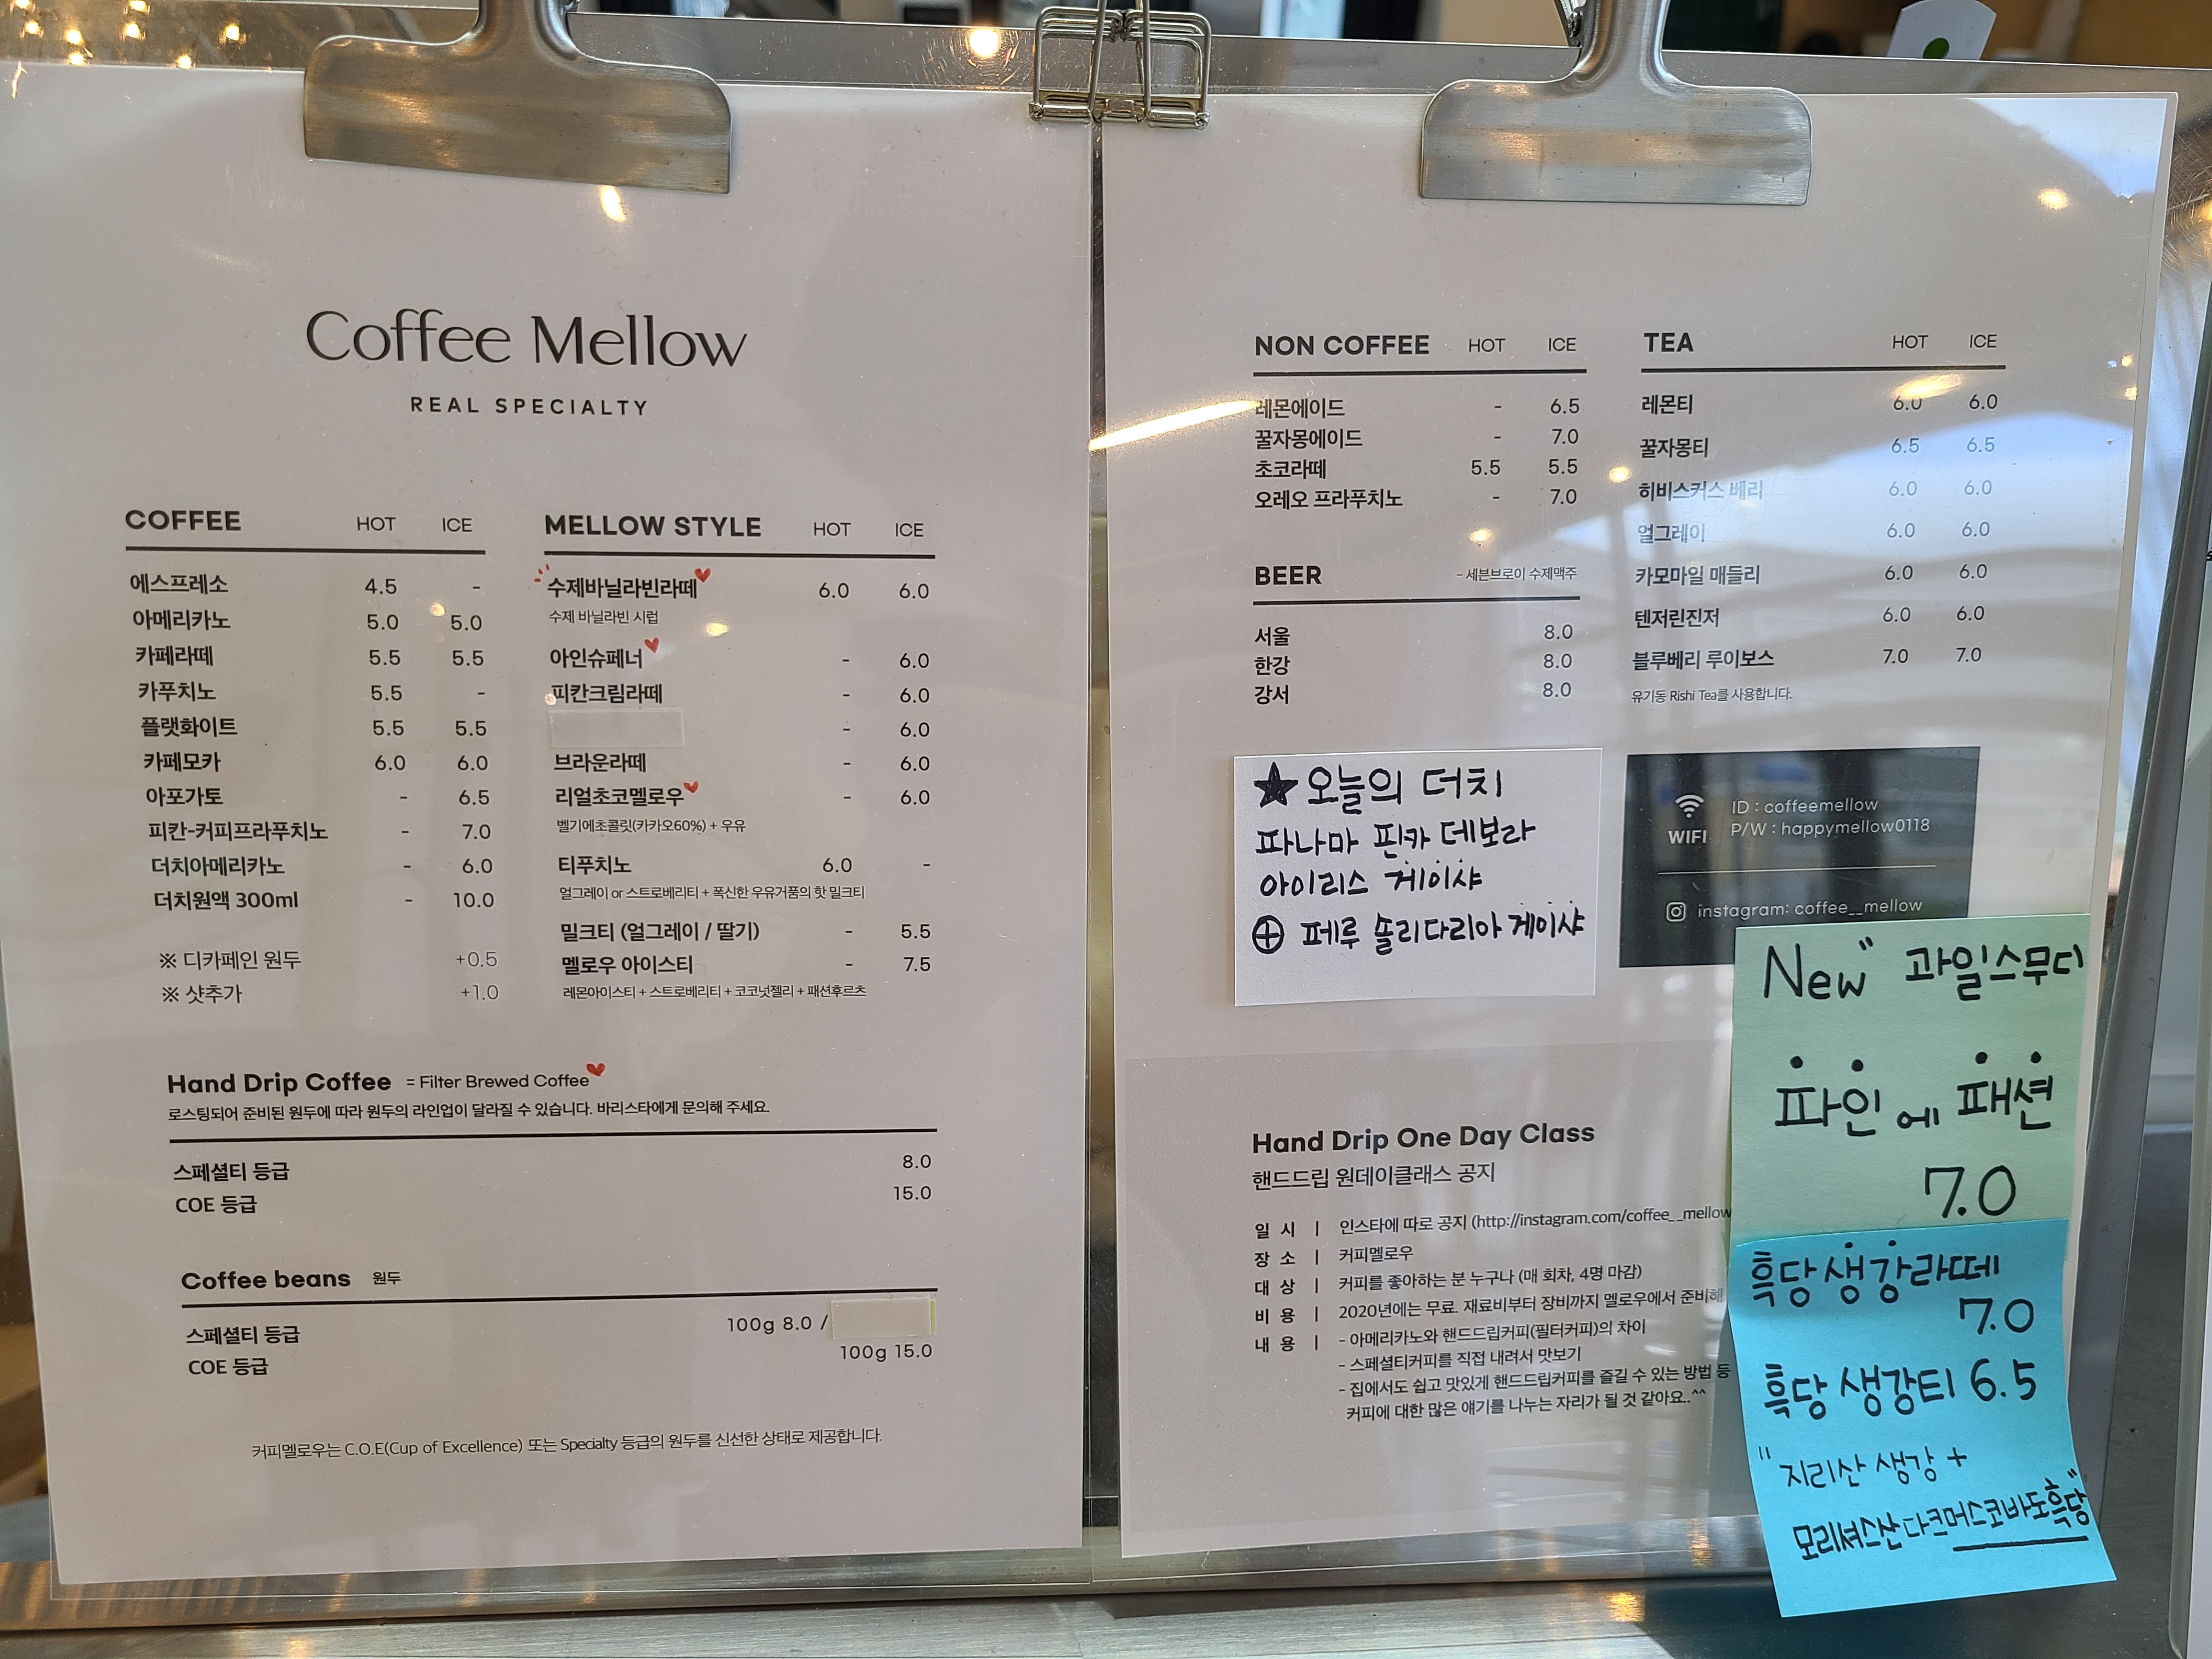 Coffee Mellow
REAL SPECIALTY
COFFEE HOT ICE
에스프레소 4.5 -
아메리카노 5.0 5.0
카페라떼 5.5 5.5
카푸치노 5.5 -
플랫화이트 5.5 5.5
카페모카 6.0 6.0
아포가토 - 6.5
피칸-커피프라푸치노 - 7.0
더치아메리카노 - 6.0
더치원액 300ml - 10.0
※ 디카페인 원두 +0.5
※ 샷추가 +1.0
MELLOW STYLE HOT ICE
수제바닐라빈라떼 6.0 6.0
수제 바닐라빈 시럽
아인슈페너 - 6.0
피칸크림라떼 - 6.0
- 6.0
브라운라떼 - 6.0
리얼초코멜로우 - 6.0
벨기에초콜릿(카카오60%) + 우유
티푸치노 6.0 -
얼그레이 or 스트로베리티 + 폭신한 우유거품의 핫 밀크티
밀크티 (얼그레이 / 딸기) - 5.5
멜로우 아이스티 - 7.5
레몬아이스티 + 스트로베리티 + 코코넛젤리 + 패션후르츠
Hand Drip Coffee = Filter Brewed Coffee
로스팅되어 준비된 원두에 따라 원두의 라인업이 달라질 수 있습니다. 바리스타에게 문의해 주세요.
스페셜티 등급 8.0
COE 등급 15.0
Coffee beans 원두
스페셜티 등급 100g 8.0 /
COE 등급 100g 15.0
커피멜로우는 C.O.E(Cup of Excellence) 또는 Specialty 등급의 원두를 신선한 상태로 제공합니다.
NON COFFEE HOT ICE
레몬에이드 - 6.5
꿀자몽에이드 - 7.0
초코라떼 5.5 5.5
오레오 프라푸치노 - 7.0
BEER - 세븐브로이 수제맥주
서울 8.0
한강 8.0
강서 8.0
TEA HOT ICE
레몬티 6.0 6.0
꿀자몽티 6.5 6.5
히비스커스 베리 6.0 6.0
얼그레이 6.0 6.0
카모마일 매들리 6.0 6.0
텐저린진저 6.0 6.0
블루베리 루이보스 7.0 7.0
유기동 Rishi Tea를 사용합니다.
★오늘의 더치
파나마 핀카 데보라
아이리스 게이샤
⊕ 페루 쏠리다리아 게이샤
WIFI
ID : coffeemellow
P/W : happymellow0118
instagram: coffee__mellow
New" 과일스무디
파인에 패션
7.0
흑당생강라떼
7.0
흑당 생강티 6.5
"지리산 생강 +
모리셔스산 다크머스코바도흑당"
Hand Drip One Day Class
핸드드립 원데이클래스 공지
일 시 | 인스타에 따로 공지 (http://instagram.com/coffee__mellow
장 소 | 커피멜로우
대 상 | 커피를 좋아하는 분 누구나 (매 회차, 4명 마감)
비 용 | 2020년에는 무료. 재료비부터 장비까지 멜로우에서 준비해
내 용 | - 아메리카노와 핸드드립커피(필터커피)의 차이
- 스페셜티커피를 직접 내려서 맛보기
- 집에서도 쉽고 맛있게 핸드드립커피를 즐길 수 있는 방법 등
커피에 대한 많은 얘기를 나누는 자리가 될 것 같아요..^^